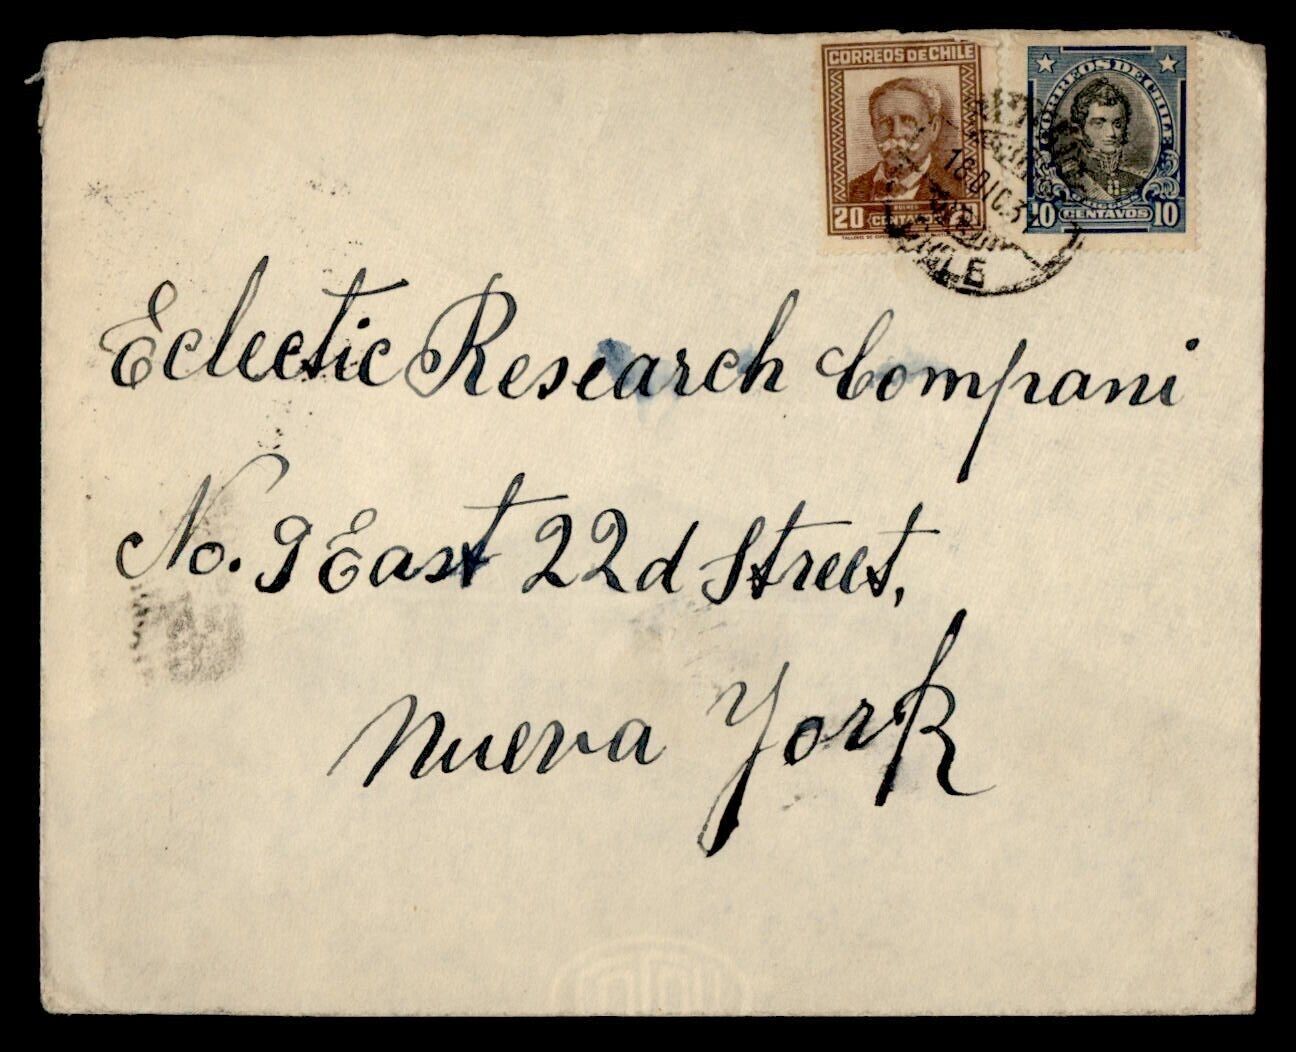 CORREOS DE CHILE
BULNES
20 CENTAVOS 20
CORREOS DE CHILE
O'HIGGINS
10 CENTAVOS 10
18 DIC 3
CHILE
Eclectic Research Compani
No. 9 East 22d Street,
Nueva York